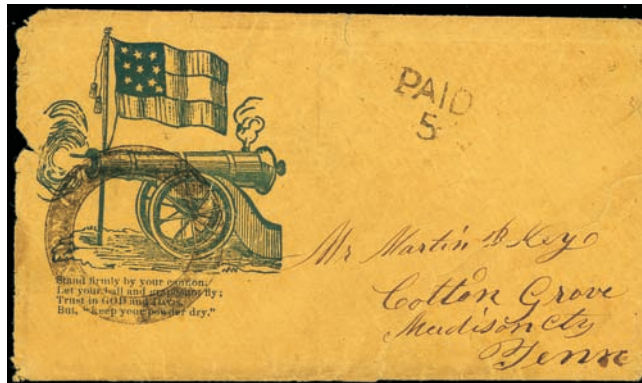 PAID
5
Stand firmly by your cannon,
Let your ball and grape shot fly;
Trust in GOD and
But, "keep your powder dry."
Mr Martin Key
Cotton Grove
Madison Cty
Tenn